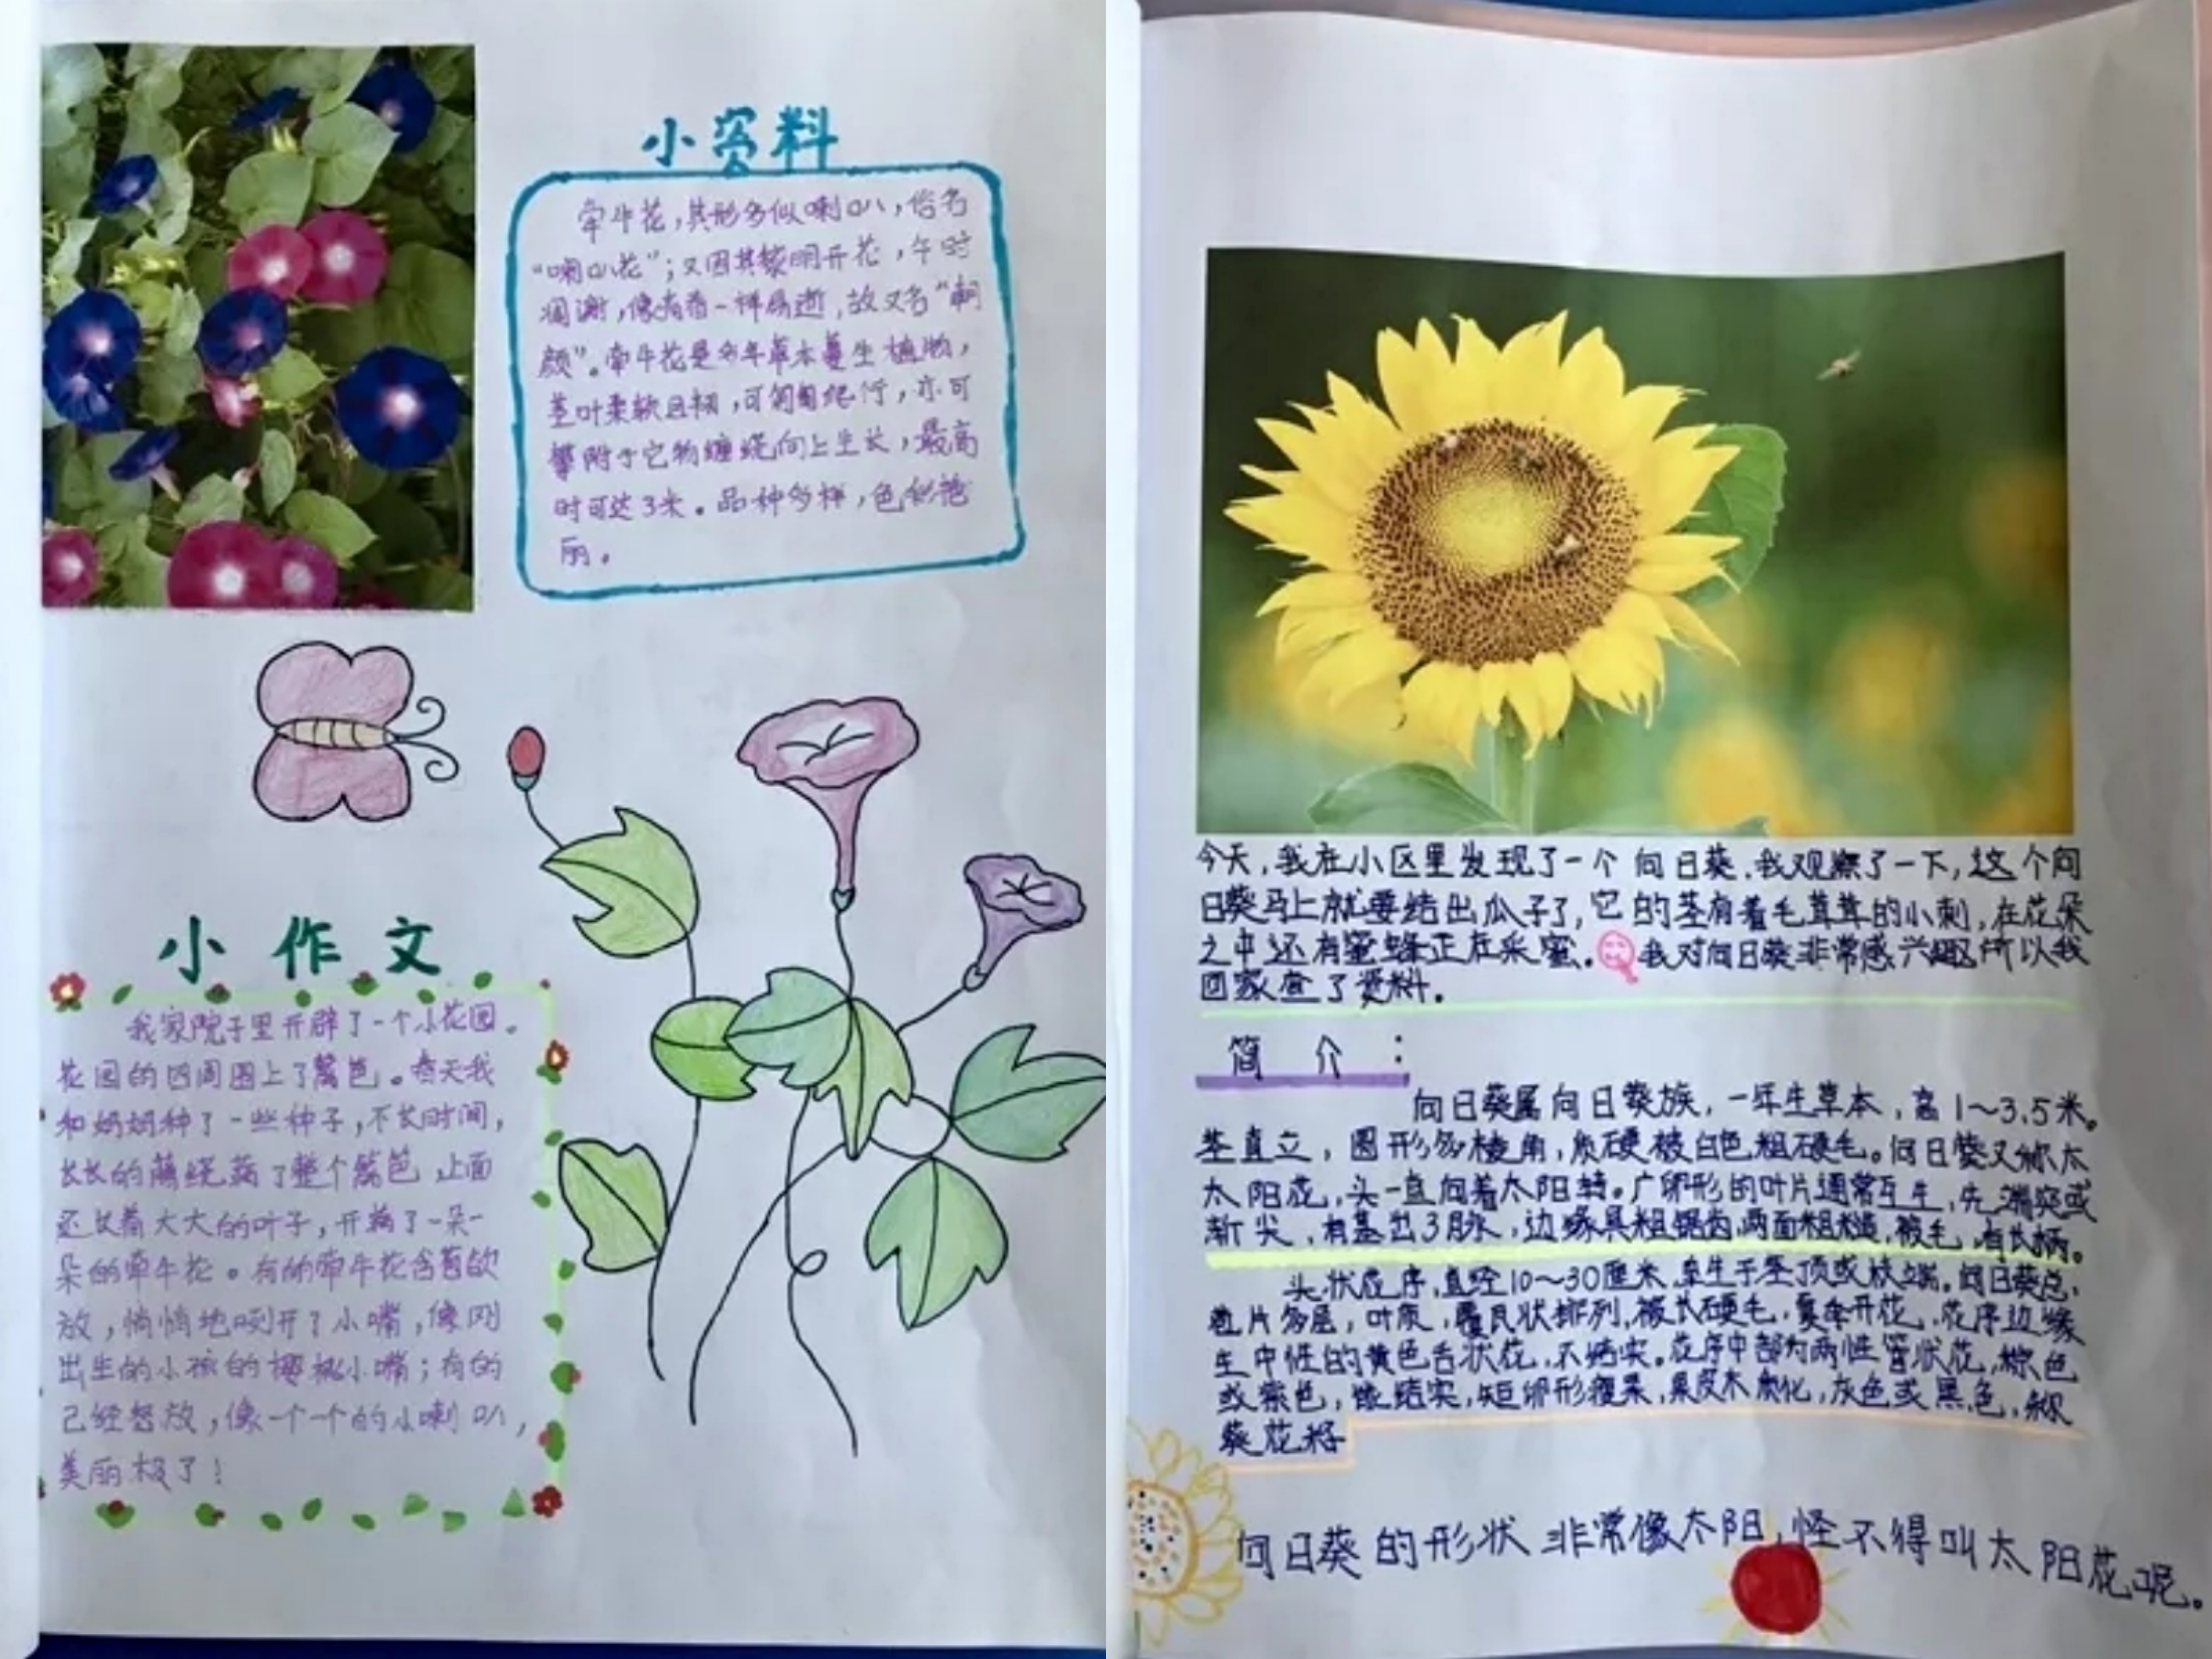 小资料
牵牛花，其形多似喇叭，俗名
“喇叭花”；又因其黎明开花，午时
凋谢，像青春一样易逝，故又名“朝
颜”。牵牛花是多年草本蔓生植物，
茎叶柔软且韧，可匍匐爬行，亦可
攀附于它物缠绕向上生长，最高
时可达3米。品种多样，色彩艳
丽。
小作文
我家院子里开辟了一个小花园。
花园的四周围上了篱笆。春天我
和奶奶种了一些种子，不长时间，
长长的藤绕满了整个篱笆，上面
还长着大大的叶子，开满了一朵一
朵的牵牛花。有的牵牛花含苞欲
放，悄悄地咧开了小嘴，像刚
出生的小孩的樱桃小嘴；有的
已经怒放，像一个一个的小喇叭，
美丽极了！
今天，我在小区里发现了一个向日葵，我观察了一下，这个向
日葵马上就要结出瓜子了，它的茎有着毛茸茸的小刺，在花朵
之中还有蜜蜂正在采蜜。我对向日葵非常感兴趣所以我
回家查了资料。
简介：
向日葵属向日葵族，一年生草本，高1～3.5米。
茎直立，圆形多棱角，质硬被白色粗硬毛。向日葵又称太
太阳花，头一直向着太阳转。广卵形的叶片通常互生，先端突或
渐尖，有基出3脉，边缘具粗锯齿，两面粗糙，被毛，有长柄。
头状花序，直径10～30厘米，单生于茎顶或枝端。向日葵总，
苞片多层，叶质，覆瓦状排列，被长硬毛，夏季开花，花序边缘
生中性的黄色舌状花，不结实。花序中部为两性管状花，棕色
或紫色，能结实，矩卵形瘦果，果皮木质化，灰色或黑色，称
葵花籽
向日葵的形状非常像太阳，怪不得叫太阳花呢。